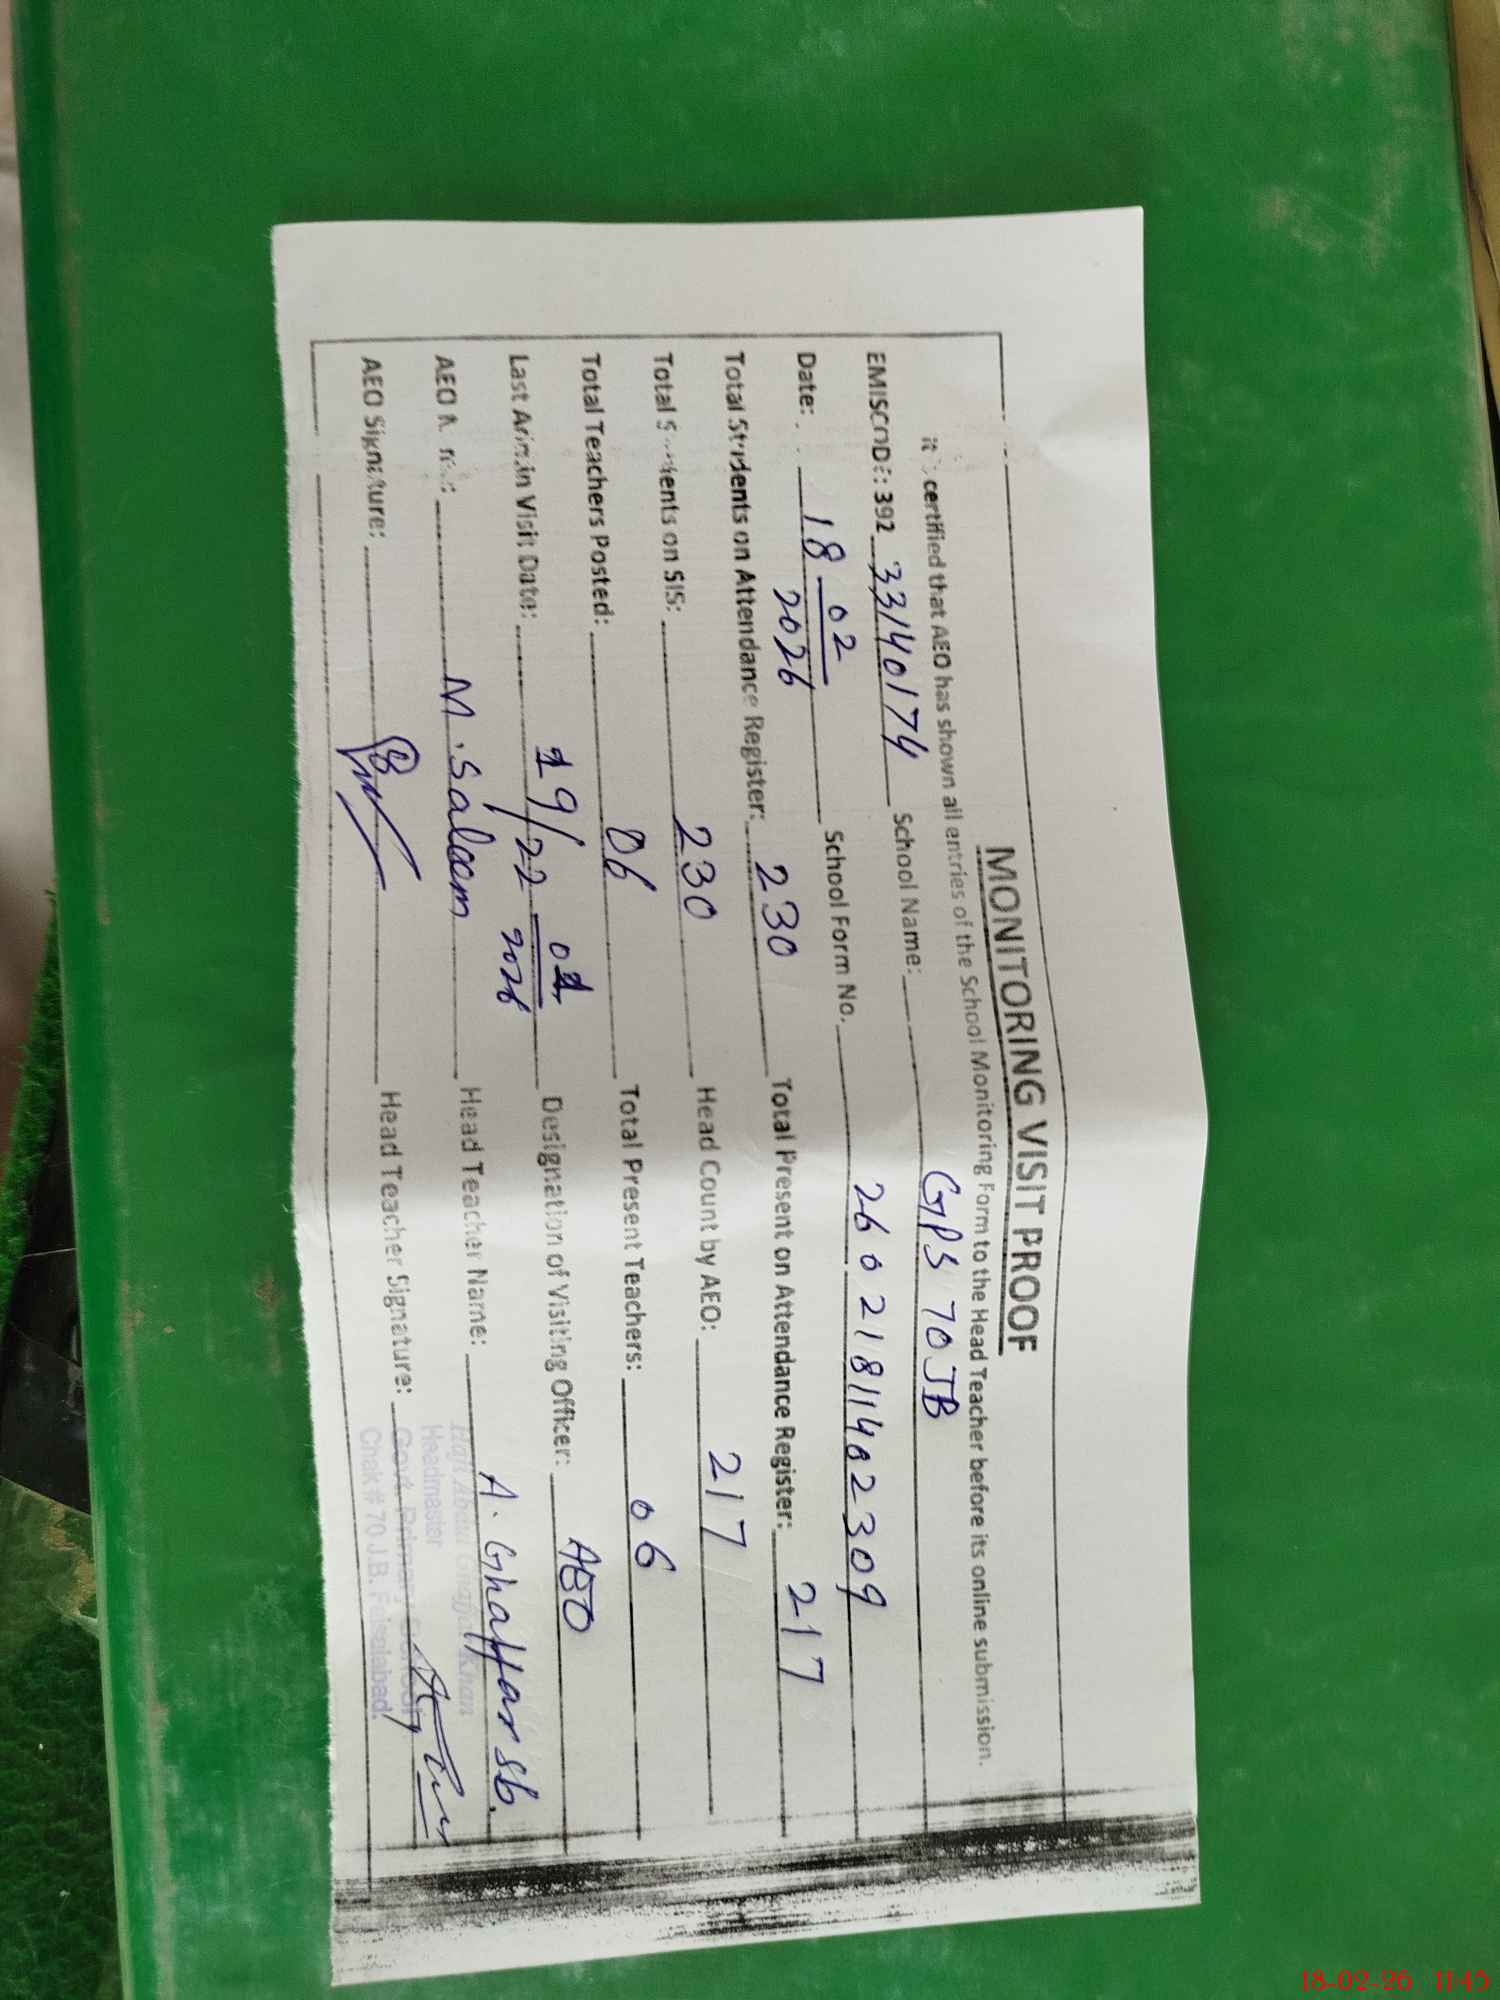 MONITORING VISIT PROOF
it is certified that AEO has shown all entries of the School Monitoring Form to the Head Teacher before its online submission.
EMISCODE: 392 33140174 School Name: GPS 70 JB
Date: 18 02 2026 School Form No. 260218114 02309
Total Students on Attendance Register: 230 Total Present on Attendance Register: 217
Total Students on SIS: 230 Head Count by AEO: 217
Total Teachers Posted: 06 Total Present Teachers: 06
Last Admin Visit Date: 19/22 01 2026 Designation of Visiting Officer: AEO
AEO Name: M. Saleem Head Teacher Name: A. Ghaffar sb.
AEO Signature: Head Teacher Signature:
Haji Abdul Ghaffar Khan
Headmaster
Govt. Primary School
Chak # 70 J.B. Faisalabad.
18-02-26 11:45